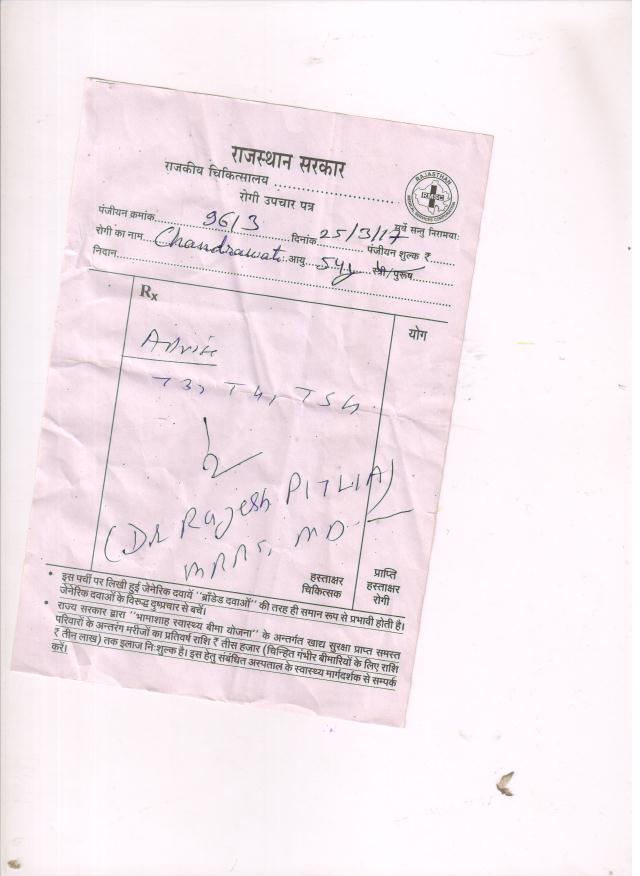 राजस्थान सरकार
राजकीय चिकित्सालय ..............................
रोगी उपचार पत्र
RAJASTHAN
सर्वे सन्तु निरामयाः
पंजीयन क्रमांक 96/3 दिनांक 25/3/17 पंजीयन शुल्क ₹
रोगी का नाम Chandrawati आयु 54y स्त्री/पुरूष
निदान
Rx
योग
Advice
T3, T4, TSH
(Dr Rajesh PITLIA)
MBBS, MD
हस्ताक्षर
चिकित्सक
प्राप्ति
हस्ताक्षर
रोगी
• इस पर्ची पर लिखी हुई जेनेरिक दवायें "ब्राँडेड दवाओं" की तरह ही समान रूप से प्रभावी होती है।
जेनेरिक दवाओं के विरूद्ध दुष्प्रचार से बचें।
• राज्य सरकार द्वारा "भामाशाह स्वास्थ्य बीमा योजना" के अन्तर्गत खाद्य सुरक्षा प्राप्त समस्त
परिवारों के अन्तरंग मरीजों का प्रतिवर्ष राशि ₹ तीस हजार (चिन्हित गंभीर बीमारियों के लिए राशि
₹ तीन लाख) तक इलाज निःशुल्क है। इस हेतु संबंधित अस्पताल के स्वास्थ्य मार्गदर्शक से सम्पर्क
करें।